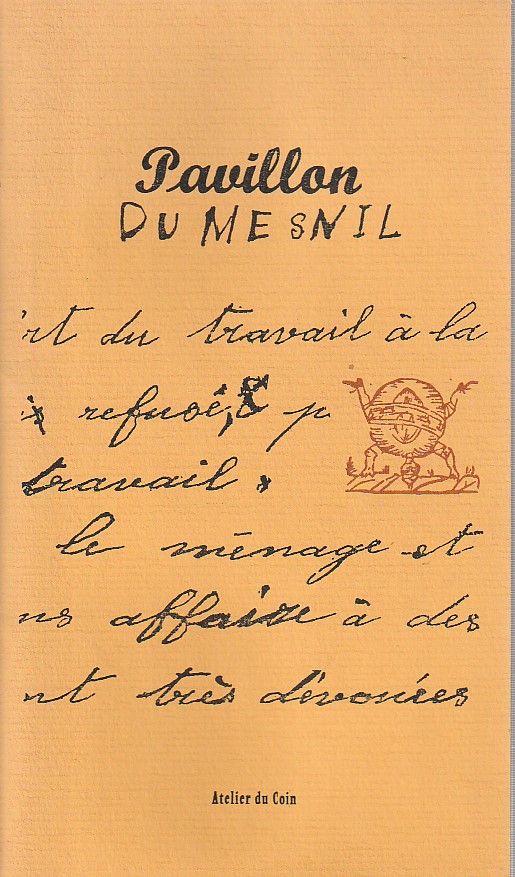 Pavillon
DU MESNIL
rt du travail à la
refusé, p
travail,
le ménage et
ns affaire à des
nt très dévouées
Atelier du Coin